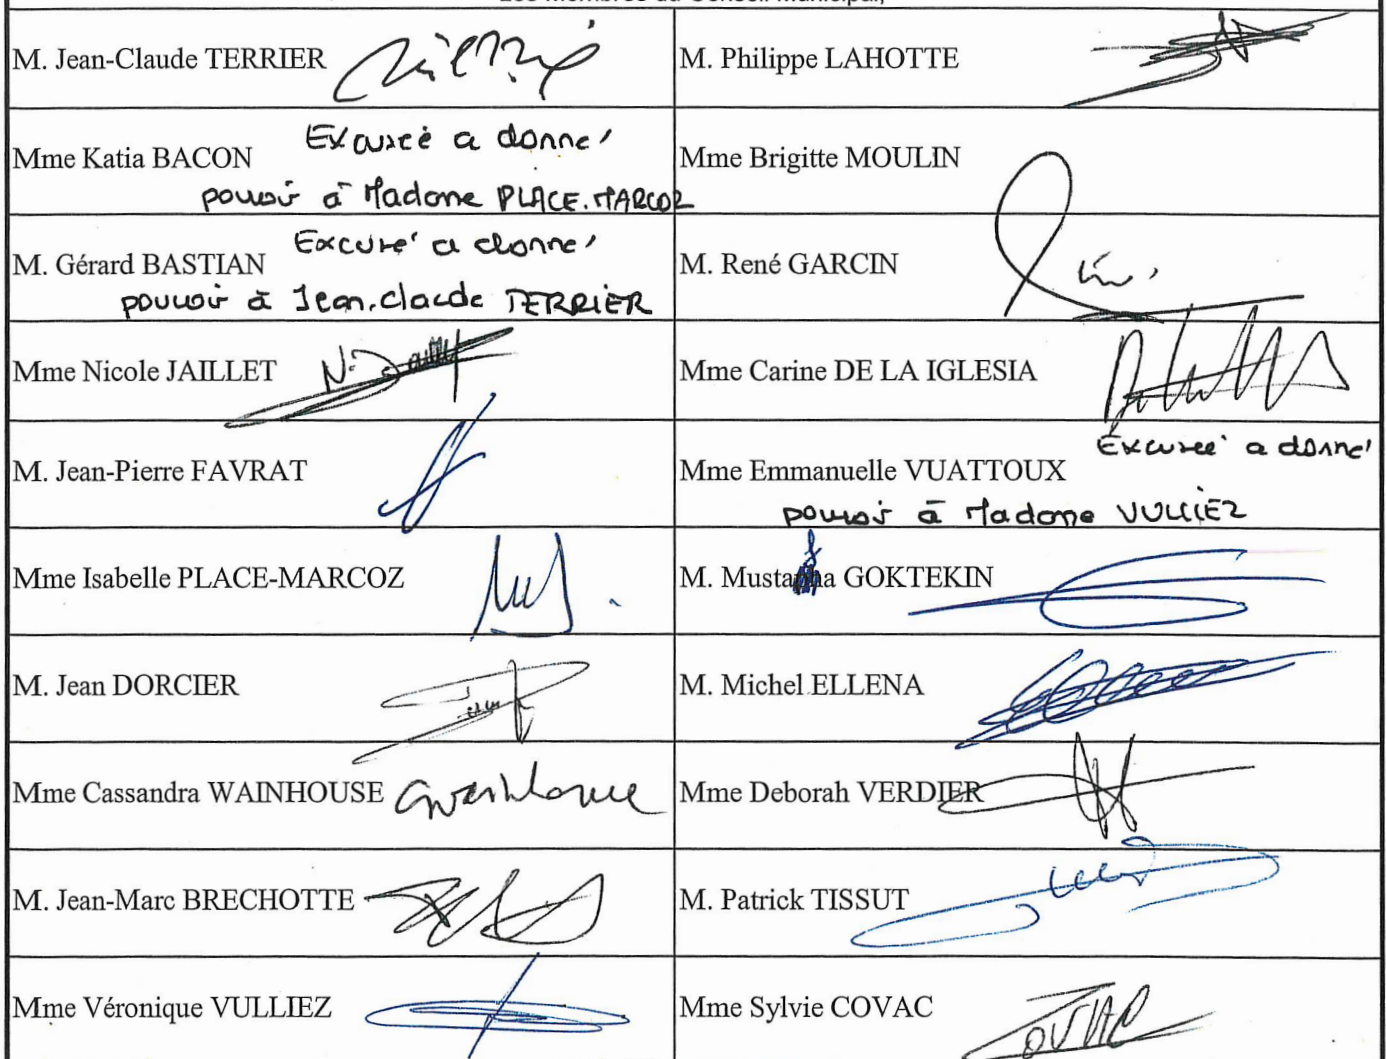 Les Membres du Conseil Municipal,
M. Jean-Claude TERRIER
M. Philippe LAHOTTE
Mme Katia BACON
Excusée a donné
pouvoir à Madame PLACE.MARCOZ
Mme Brigitte MOULIN
M. Gérard BASTIAN
Excusé a donné
pouvoir à Jean.Claude TERRIER
M. René GARCIN
Mme Nicole JAILLET
Mme Carine DE LA IGLESIA
M. Jean-Pierre FAVRAT
Mme Emmanuelle VUATTOUX
Excusée a donné
pouvoir à Madame VULLIEZ
Mme Isabelle PLACE-MARCOZ
M. Mustafa GOKTEKIN
M. Jean DORCIER
M. Michel ELLENA
Mme Cassandra WAINHOUSE
Mme Deborah VERDIER
M. Jean-Marc BRECHOTTE
M. Patrick TISSUT
Mme Véronique VULLIEZ
Mme Sylvie COVAC
COVAC